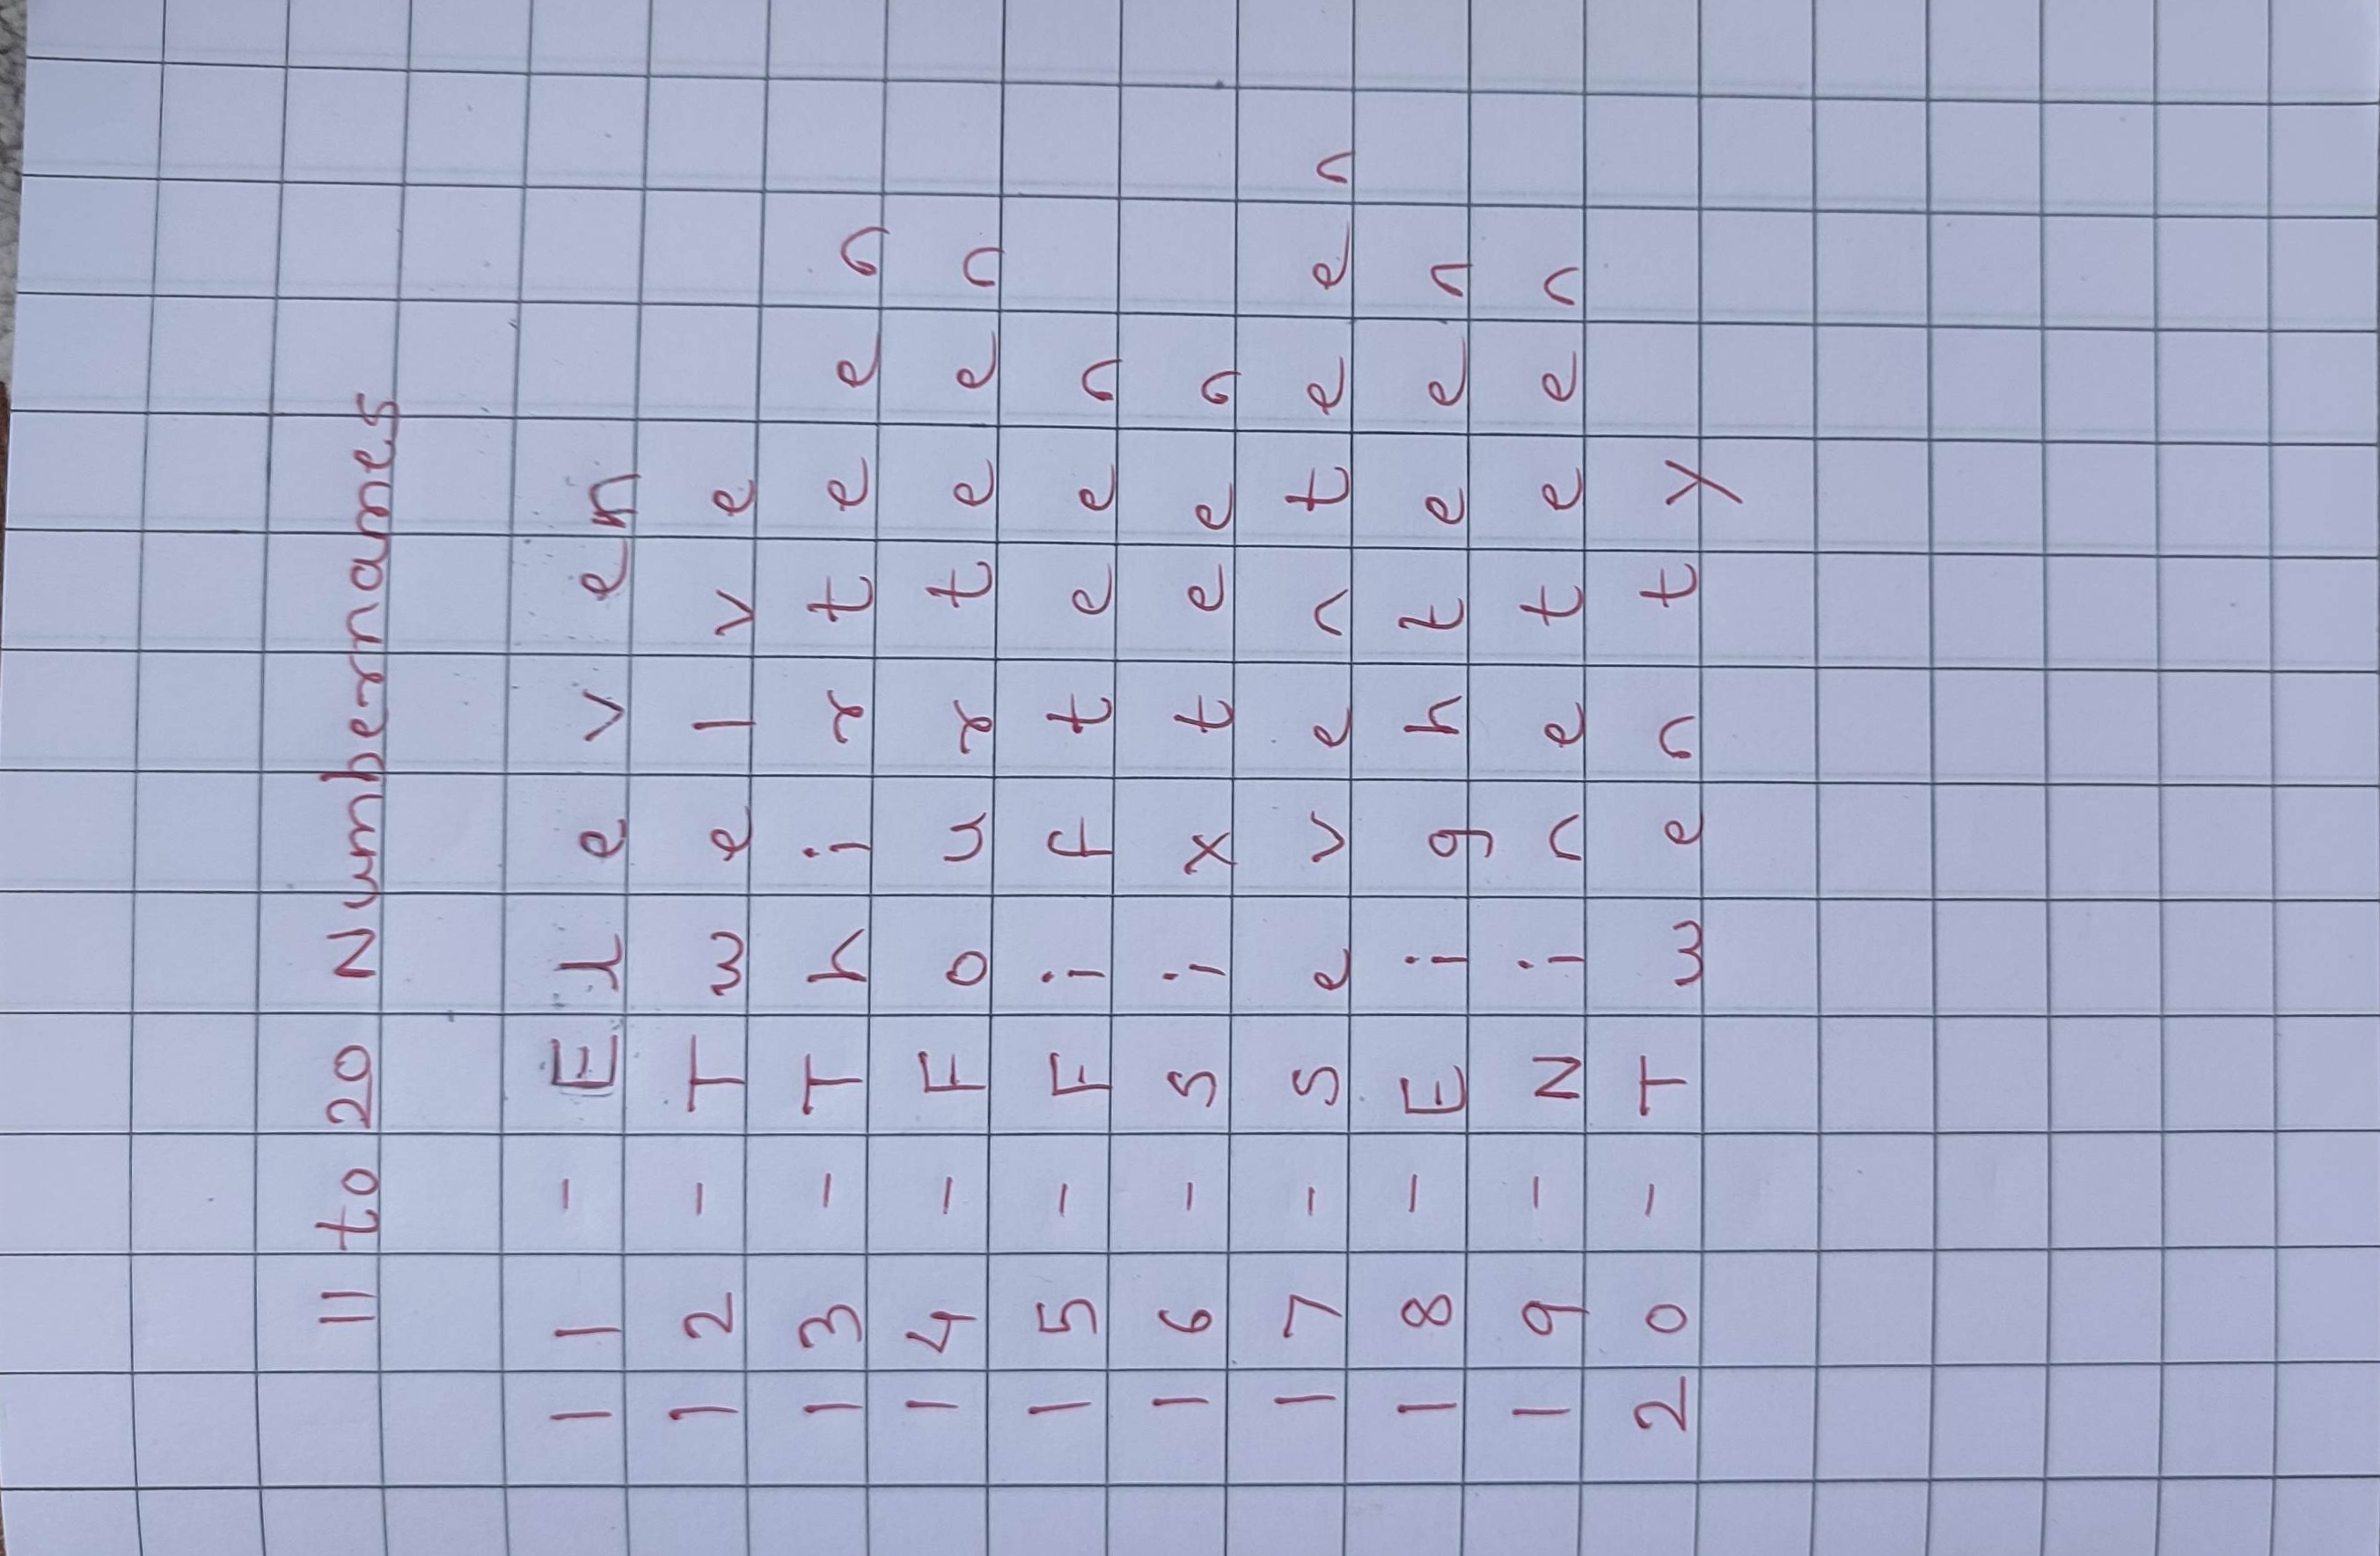 11 to 20 Numbernames
11 - Eleven
12 - Twelve
13 - Thirteen
14 - Fourteen
15 - Fifteen
16 - Sixteen
17 - Seventeen
18 - Eighteen
19 - Nineteen
20 - Twenty